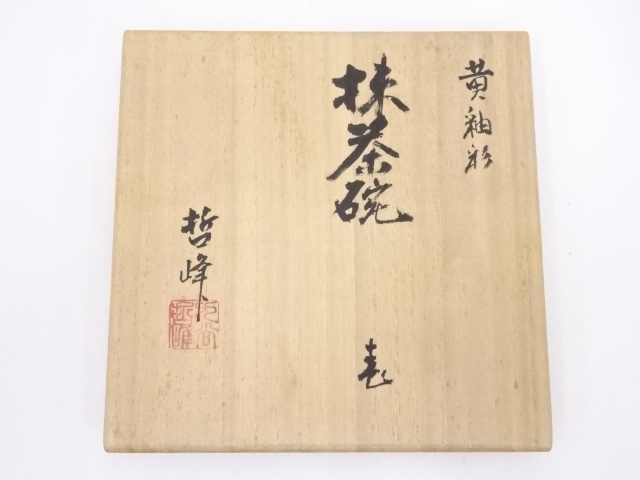 黄釉彩
抹茶碗
哲峰